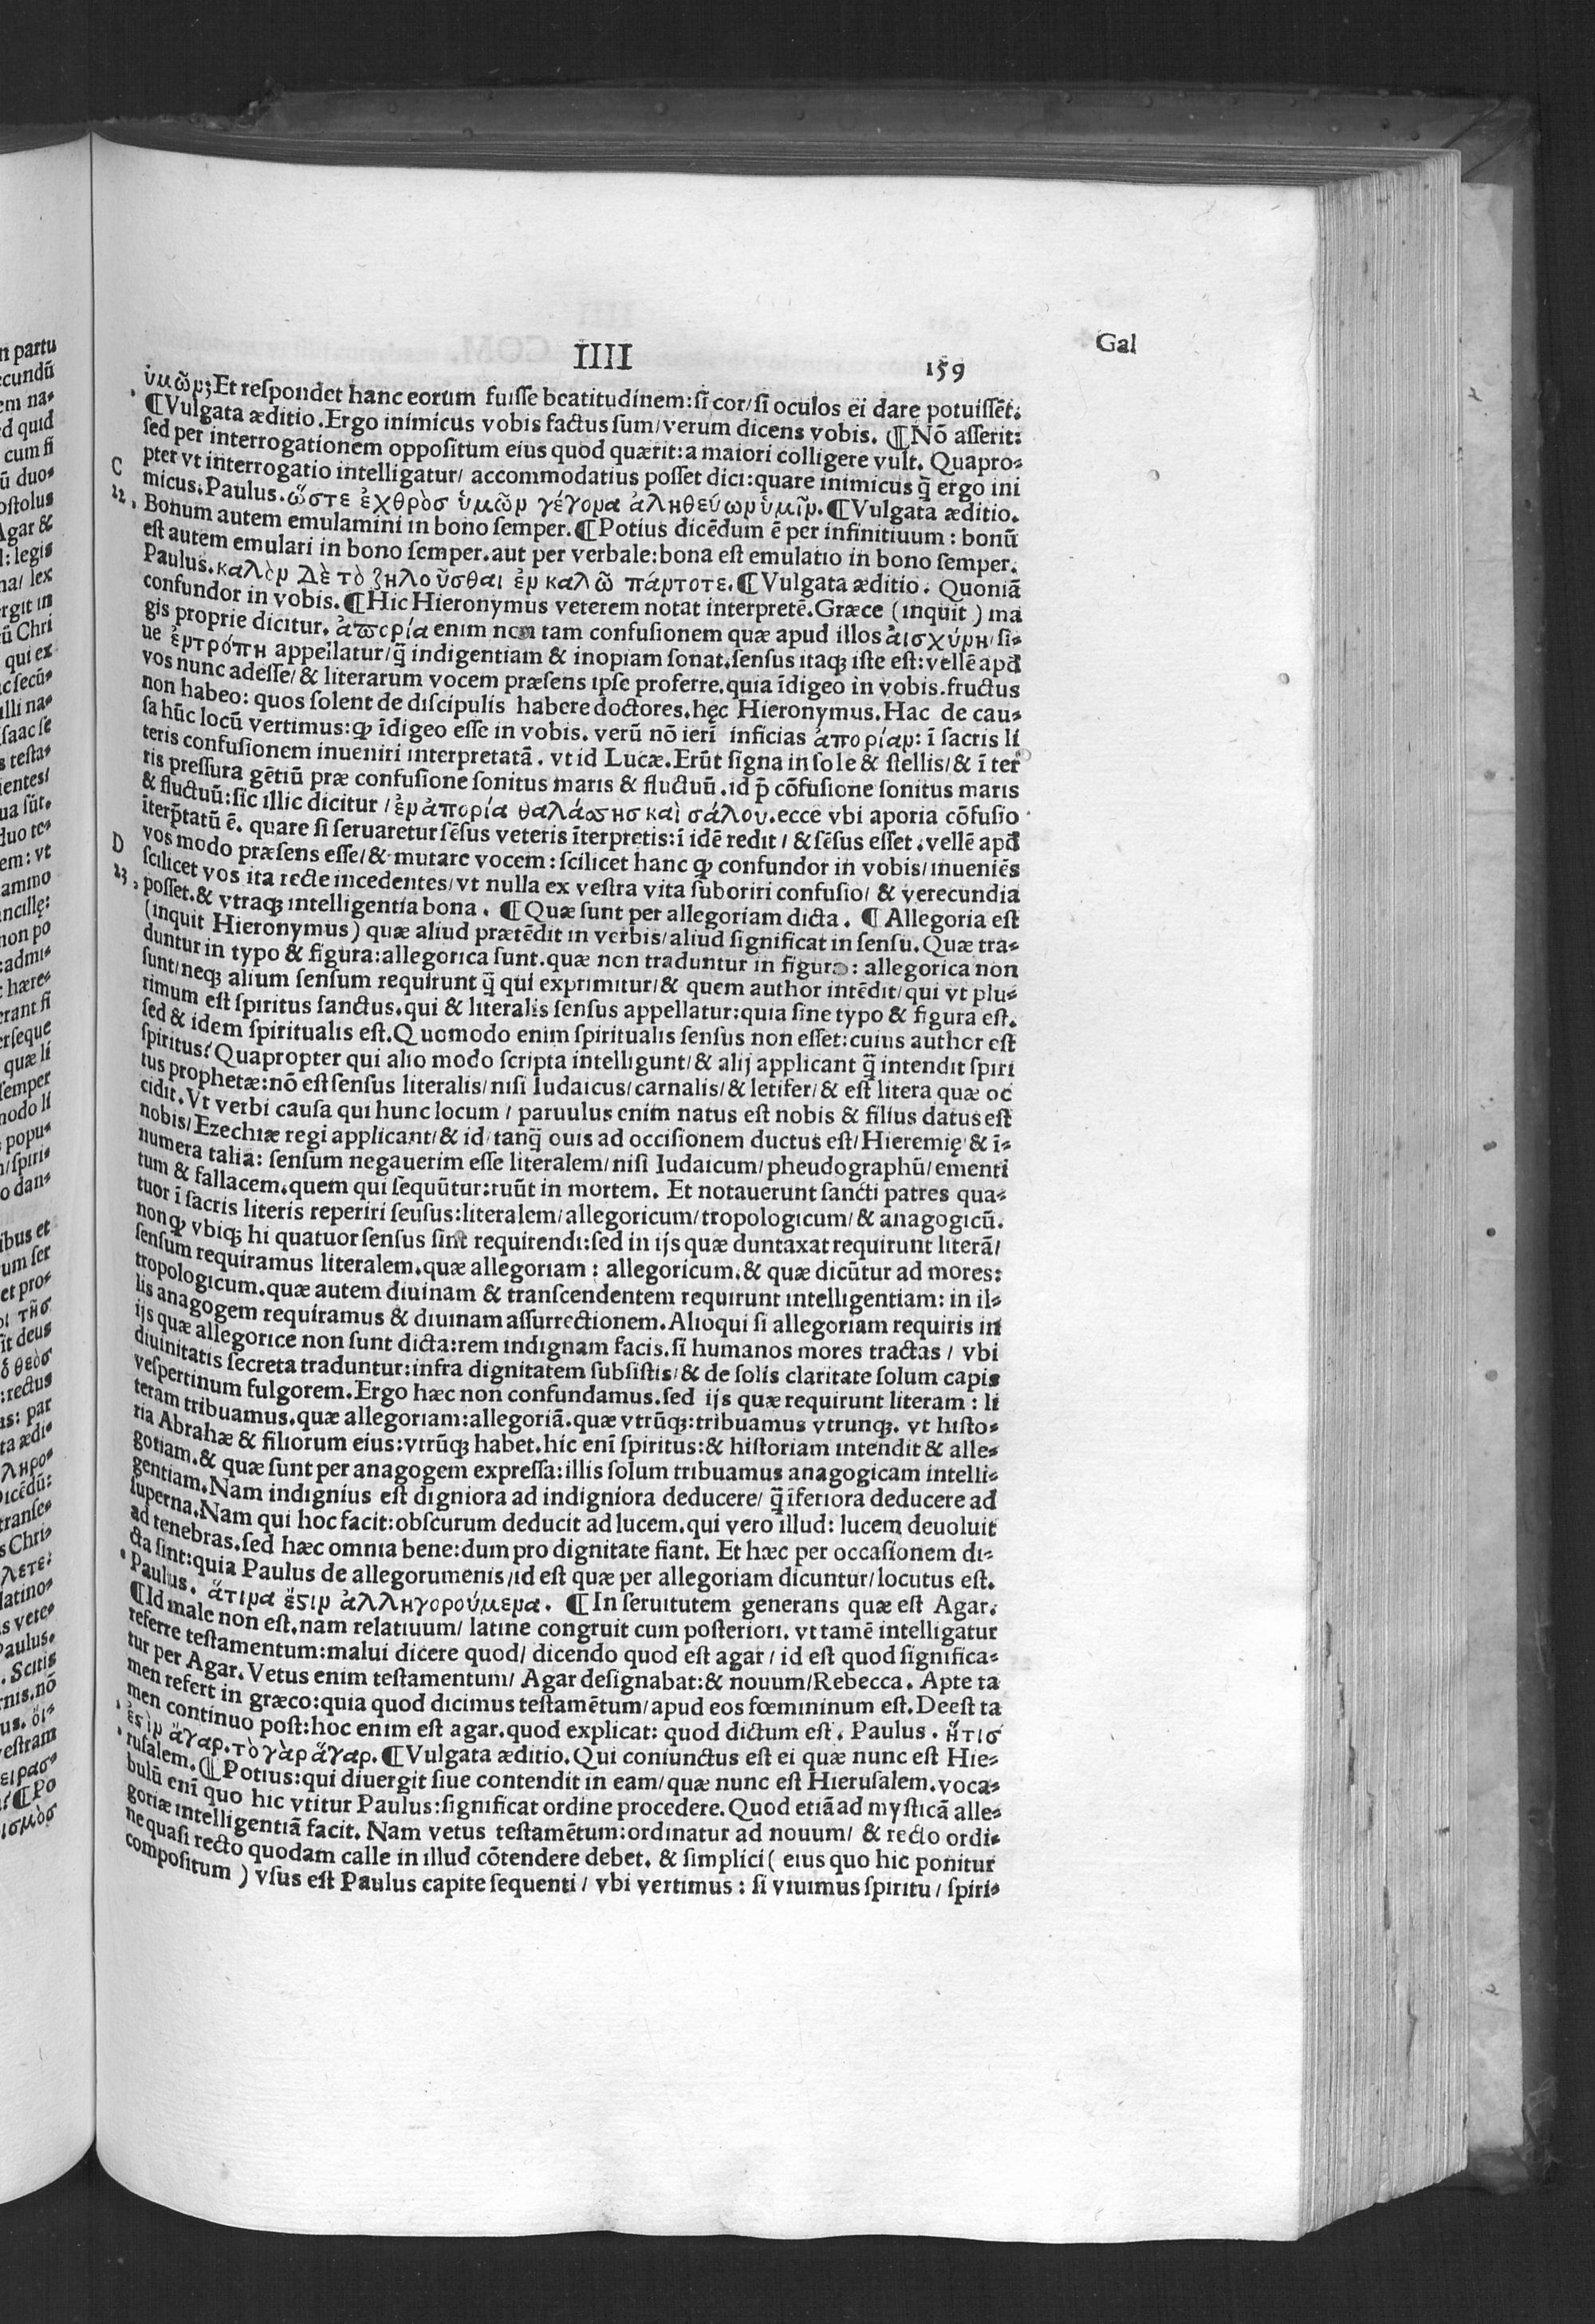 IIII
159
Gal
ὑμῶν; Et reſpondet hanc eorum fuiſſe beatitudinem: ſi cor/ ſi oculos ei dare potuiſſẽt.
¶Vulgata æditio. Ergo inimicus vobis factus ſum/ verum dicens vobis. ¶Nõ aſſerit:
ſed per interrogationem oppoſitum eius quod quærit: a maiori colligere vult. Quapro⸗
C pter vt interrogatio intelligatur/ accommodatius poſſet dici: quare inimicus q̃ ergo ini
micus. Paulus. ὥστε ἐχθρὸσ ὑμῶν γέγονα ἀληθεύων ὑμῖν. ¶Vulgata æditio.
22. Bonum autem emulamini in bono ſemper. ¶Potius dicẽdum ẽ per infinitiuum: bonũ
eſt autem emulari in bono ſemper. aut per verbale: bona eſt emulatio in bono ſemper.
Paulus. καλὸν δὲ τὸ ζηλοῦσθαι ἐν καλῶ πάντοτε. ¶Vulgata æditio. Quoniã
confundor in vobis. ¶Hic Hieronymus veterem notat interpretẽ. Græce (inquit) ma
gis proprie dicitur. ἀπορία enim non tam confuſionem quæ apud illos ἀισχύνη/ ſi⸗
ue ἐντρόπη appellatur/ q̃ indigentiam & inopiam ſonat. ſenſus itaqꝫ iſte eſt: vellẽ apđ
vos nunc adeſſe/ & literarum vocem præſens ipſe proferre. quia ĩdigeo in vobis. fructus
non habeo: quos ſolent de diſcipulis habere doctores. hęc Hieronymus. Hac de cau⸗
ſa hũc locũ vertimus: ꝙ ĩdigeo eſſe in vobis. verũ nõ ierĩ inficias ἀπορίαν: ĩ ſacris li
teris confuſionem inueniri interpretatã. vt id Lucæ. Erũt ſigna in ſole & ſtellis/ & ĩ ter
ris preſſura gẽtiũ præ confuſione ſonitus maris & fluctuũ. id p̃ cõfuſione ſonitus maris
& fluctuũ: ſic illic dicitur/ ἐν ἀπορία θαλάσσησ καὶ σάλου. ecce vbi aporia cõfuſio
ĩterp̃tatũ ẽ. quare ſi ſeruaretur ſẽſus veteris ĩterpretis: ĩ idẽ redit/ & ſẽſus eſſet. vellẽ apđ
D vos modo præſens eſſe/ & mutare vocem: ſcilicet hanc ꝙ confundor in vobis/ inueniẽs
ſcilicet vos ita recte incedentes/ vt nulla ex veſtra vita ſuboriri confuſio/ & verecundia
23. poſſet. & vtraqꝫ intelligentia bona. ¶Quæ ſunt per allegoriam dicta. ¶Allegoria eſt
(inquit Hieronymus) quæ aliud prætẽdit in verbis/ aliud ſignificat in ſenſu. Quæ tra⸗
duntur in typo & figura: allegorica ſunt. quæ non traduntur in figura: allegorica non
ſunt/ neqꝫ alium ſenſum requirunt q̃ qui exprimitur/ & quem author intẽdit/ qui vt plu⸗
rimum eſt ſpiritus ſanctus. qui & literalis ſenſus appellatur: quia ſine typo & figura eſt.
ſed & idem ſpiritualis eſt. Quomodo enim ſpiritualis ſenſus non eſſet: cuius author eſt
ſpiritus? Quapropter qui alio modo ſcripta intelligunt/ & alij applicant q̃ intendit ſpiri
tus prophetæ: nõ eſt ſenſus literalis/ niſi Iudaicus/ carnalis/ & letifer/ & eſt litera quæ oc
cidit. Vt verbi cauſa qui hunc locum/ paruulus enim natus eſt nobis & filius datus eſt
nobis/ Ezechiæ regi applicant/ & id/ tanq̃ ouis ad occiſionem ductus eſt/ Hieremię & ĩ⸗
numera talia: ſenſum negauerim eſſe literalem/ niſi Iudaicum/ pheudographũ/ ementi
tum & fallacem. quem qui ſequũtur: ruũt in mortem. Et notauerunt ſancti patres qua⸗
tuor ĩ ſacris literis reperiri ſeuſus: literalem/ allegoricum/ tropologicum/ & anagogicũ.
non ꝙ vbiqꝫ hi quatuor ſenſus ſint requirendi: ſed in ijs quæ duntaxat requirunt literã/
ſenſum requiramus literalem. quæ allegoriam: allegoricum. & quæ dicũtur ad mores:
tropologicum. quæ autem diuinam & tranſcendentem requirunt intelligentiam: in il⸗
lis anagogem requiramus & diuinam aſſurrectionem. Alioqui ſi allegoriam requiris in
ijs quæ allegorice non ſunt dicta: rem indignam facis. ſi humanos mores tractas/ vbi
diuinitatis ſecreta traduntur: infra dignitatem ſubſiſtis/ & de ſolis claritate ſolum capis
veſpertinum fulgorem. Ergo hæc non confundamus. ſed ijs quæ requirunt literam: li
teram tribuamus. quæ allegoriam: allegoriã. quæ vtrũqꝫ: tribuamus vtrunqꝫ. vt hiſto⸗
ria Abrahæ & filiorum eius: vtrũqꝫ habet. hic enĩ ſpiritus: & hiſtoriam intendit & alle⸗
gotiam. & quæ ſunt per anagogem expreſſa: illis ſolum tribuamus anagogicam intelli⸗
gentiam. Nam indignius eſt digniora ad indigniora deducere/ q̃ ĩferiora deducere ad
ſuperna. Nam qui hoc facit: obſcurum deducit ad lucem. qui vero illud: lucem deuoluit
ad tenebras. ſed hæc omnia bene: dum pro dignitate fiant. Et hæc per occaſionem di⸗
cta ſint: quia Paulus de allegorumenis/ id eſt quæ per allegoriam dicuntur/ locutus eſt.
Paulus. ἅτινα ἔϛιν ἀλληγορούμενα. ¶In ſeruitutem generans quæ eſt Agar.
¶Id male non eſt. nam relatiuum/ latine congruit cum poſteriori. vt tamẽ intelligatur
referre teſtamentum: malui dicere quod/ dicendo quod eſt agar/ id eſt quod ſignifica⸗
tur per Agar. Vetus enim teſtamentum/ Agar deſignabat: & nouum/ Rebecca. Apte ta
men refert in græco: quia quod dicimus teſtamẽtum/ apud eos fœmininum eſt. Deeſt ta
men continuo poſt: hoc enim eſt agar. quod explicat: quod dictum eſt. Paulus. ἥτισ
ἐϛὶν ἄγαρ. τὸ γὰρ ἄγαρ. ¶Vulgata æditio. Qui coniunctus eſt ei quæ nunc eſt Hie⸗
ruſalem. ¶Potius: qui diuergit ſiue contendit in eam/ quæ nunc eſt Hieruſalem. voca⸗
bulũ enĩ quo hic vtitur Paulus: ſignificat ordine procedere. Quod etiã ad myſticã alle⸗
goriæ intelligentiã facit. Nam vetus teſtamẽtum: ordinatur ad nouum/ & recto ordi⸗
ne quaſi recto quodam calle in illud cõtendere debet. & ſimplici (eius quo hic ponitur
compoſitum) vſus eſt Paulus capite ſequenti/ vbi vertimus: ſi viuimus ſpiritu/ ſpiri⸗